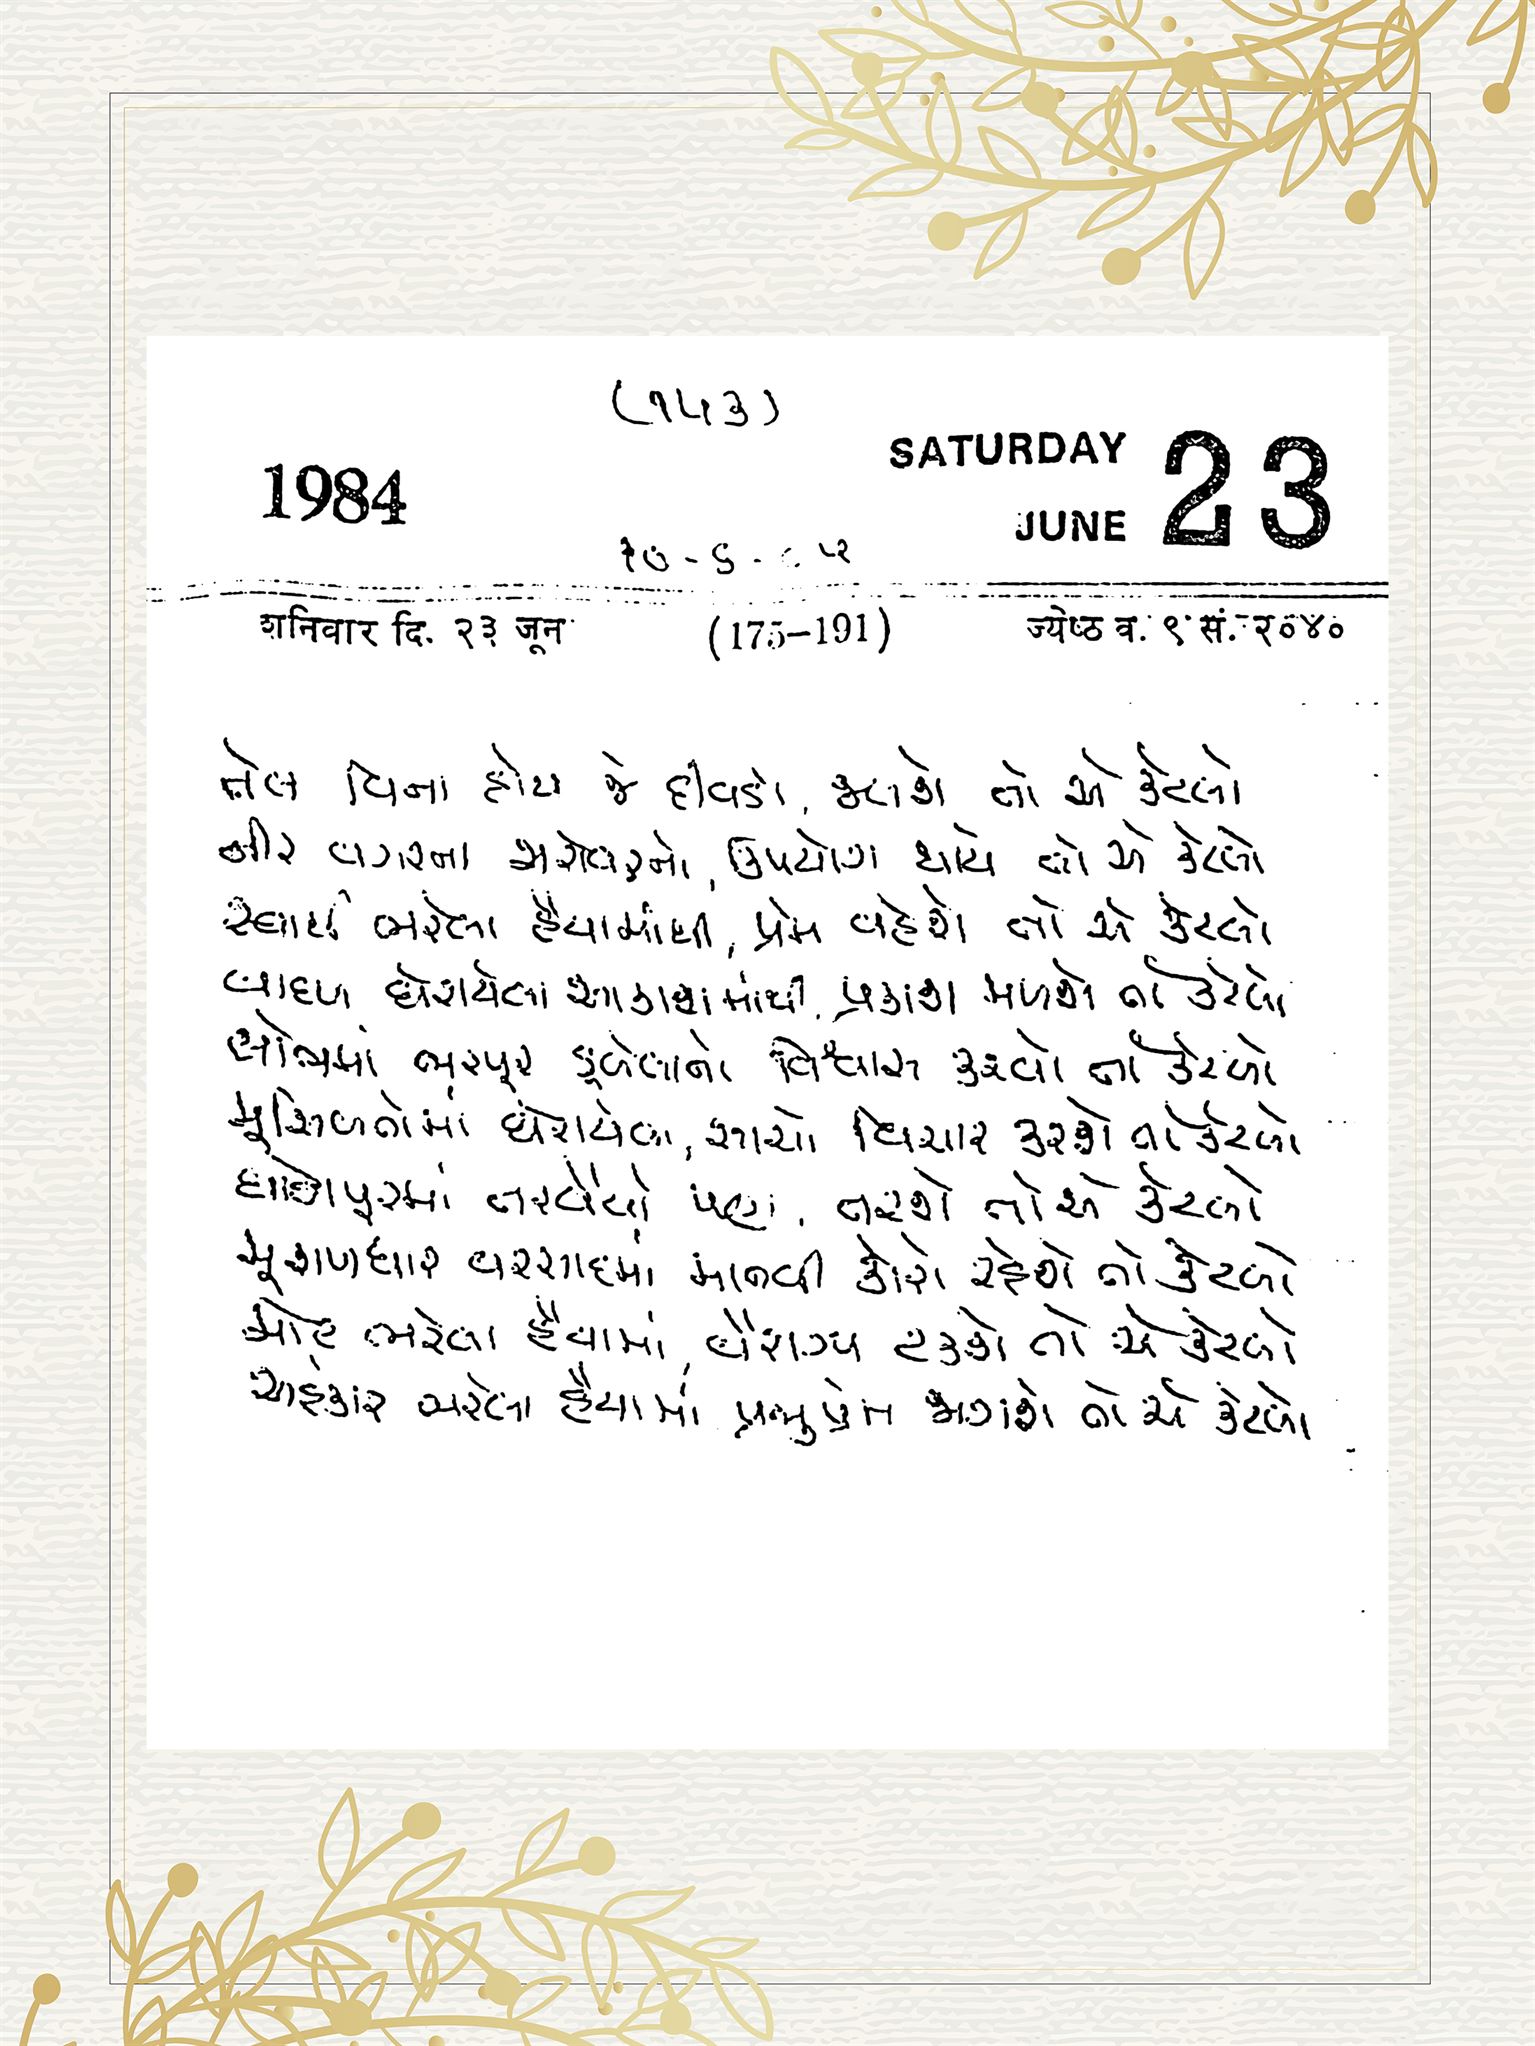 (૧૫૩)
1984
SATURDAY 23
JUNE
शनिवार दि. २३ जून (175–191) ज्येष्ठ व. ९ सं. २०४०
તેલ વિના હોય જે દીવડો, જલશે તો એ કેટલો
નીર વગરના સરોવરનો, ઉપયોગ થાયે તો એ કેટલો
સ્વાર્થ ભરેલા હૈયામાંથી, પ્રેમ વહેશે તો એ કેટલો
વાદળ ઘેરાયેલા આકાશમાંથી, પ્રકાશ મળશે તો કેટલો
લોભમાં ભરપૂર ડૂબેલાનો વિશ્વાસ કરવો તો કેટલો
મુસીબતોમાં ઘેરાયેલા, સાચો વિચાર કરશે તો કેટલો
ઘોડાપૂરમાં તરવૈયો પણ, તરશે તો એ કેટલો
મૂશળધાર વરસાદમાં માનવી કોરો રહેશે તો કેટલો
મોહ ભરેલા હૈયામાં, વૈરાગ્ય ટકશે તો એ કેટલો
અહંકાર ભરેલા હૈયામાં પ્રભુપ્રેમ જાગશે તો એ કેટલો